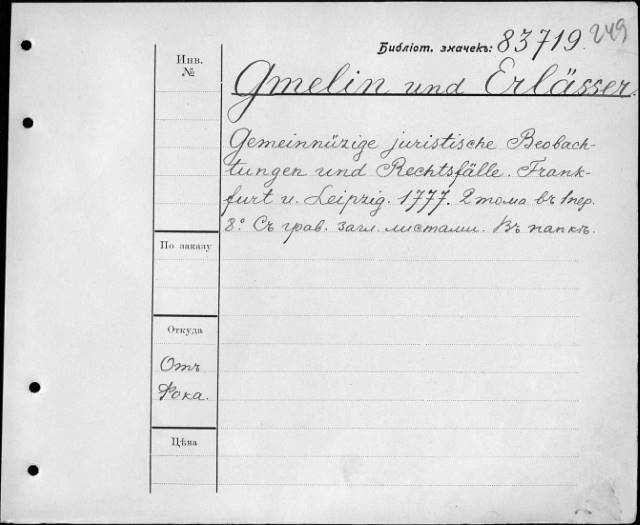 Библіот. значекъ: 83719. 249
Инв.
№
Gmelin und Erlässer.
Gemeinnüzige juristische Beobach-
tungen und Rechtsfälle. Frank-
furt u. Leipzig. 1777. 2 тома въ 1 пер.
8.° Съ грав. загл. листами. Въ папкѣ.
По заказу
Откуда
Отъ
Фока.
Цѣна